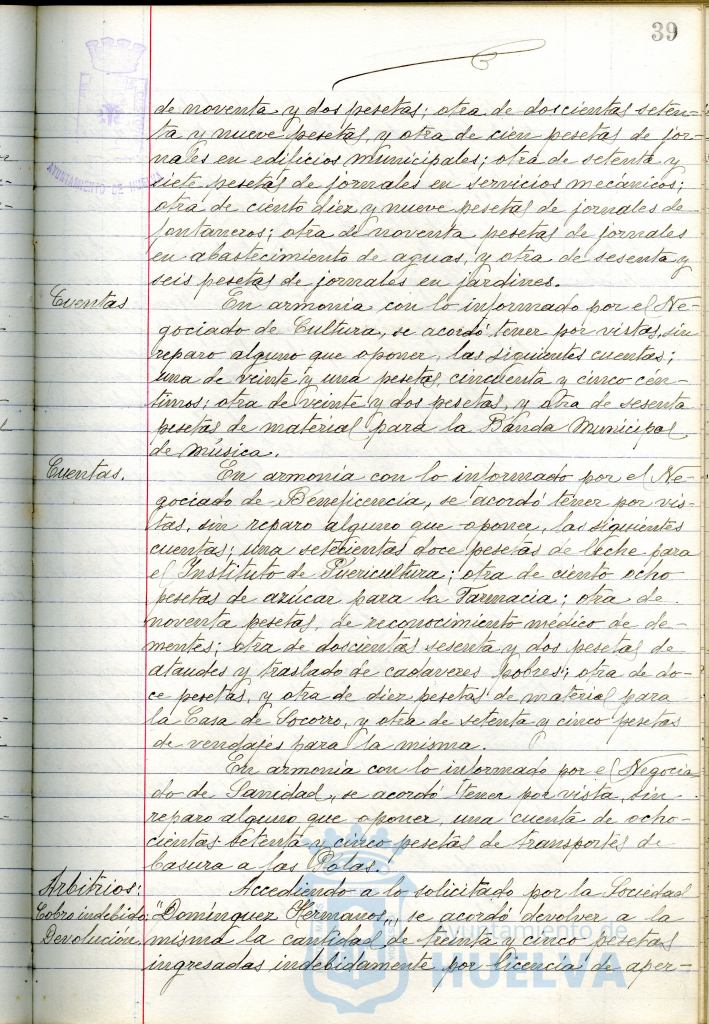 39
AYUNTAMIENTO DE HUELVA
de noventa y dos pesetas; otra de doscientas seten-
ta y nueve pesetas, y otra de cien pesetas de jor-
nales en edificios municipales; otra de setenta y
siete pesetas de jornales en servicios mecánicos;
otra de ciento diez y nueve pesetas de jornales de
fontaneros; otra de noventa pesetas de jornales
en abastecimiento de aguas, y otra de sesenta y
seis pesetas de jornales en jardines.
Cuentas
En armonía con lo informado por el Ne-
gociado de Cultura, se acordó tener por vistas, sin
reparo alguno que oponer, las siguientes cuentas;
una de veinte y una pesetas, cincuenta y cinco cén-
timos; otra de veinte y dos pesetas, y otra de sesenta
pesetas de material para la Banda Municipal
de música.
Cuentas.
En armonía con lo informado por el Ne-
gociado de Beneficencia, se acordó tener por vis-
tas, sin reparo alguno que oponer, las siguientes
cuentas; una setecientas doce pesetas de leche para
el Instituto de Puericultura; otra de ciento ocho
pesetas de azúcar para la Farmacia; otra de
noventa pesetas, de reconocimiento médico de de-
mentes; otra de doscientas sesenta y dos pesetas de
ataudes y traslado de cadaveres pobres; otra de do-
ce pesetas, y otra de diez pesetas de material para
la Casa de Socorro, y otra de setenta y cinco pesetas
de vendajes para la misma.
En armonía con lo informado por el Negocia
do de Sanidad, se acordó tener por vista, sin
reparo alguno que oponer, una cuenta de ocho-
cientas setenta y cinco pesetas de transportes de
basura a las
Arbitrios:
Cobro indebido;
Devolución,
Accediendo a lo solicitado por la Sociedad
"Domínguez Hermanos", se acordó devolver a la
misma la cantidad de treinta y cinco pesetas
ingresadas indebidamente por licencia de aper-
Ayuntamiento de
HUELVA